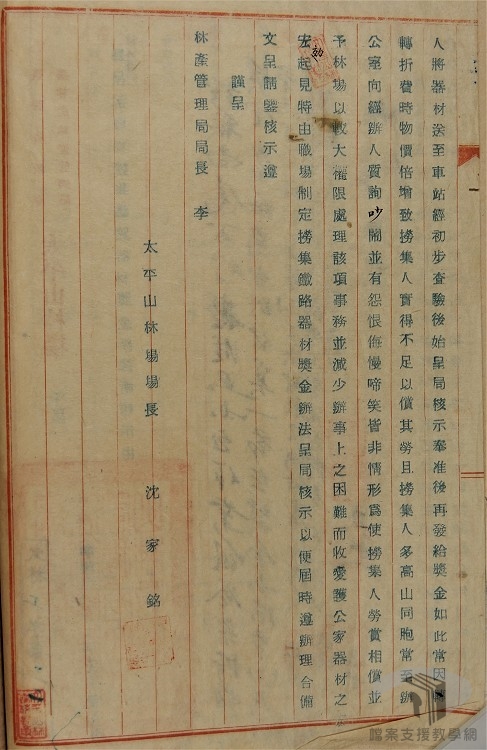 人將器材送至車站經初步查驗後始呈局核示奉准後再發給獎金如此常因
轉折費時物價倍增致撈集人實得不足以償其勞且撈集人多高山同胞常至辦
公室向經辦人質詢吵鬧並有怨恨侮慢啼笑皆非情形爲使撈集人勞賞相償並
予林場以較大權限處理該項事務並減少辦事上之困難而收愛護公家器材之
効
宏起見特由職場制定撈集鐵路器材獎金辦法呈局核示以便屆時遵辦理合備
文呈請鑒核示遵
謹呈
林產管理局局長 李
太平山林場場長 沈家銘
檔案支援教學網